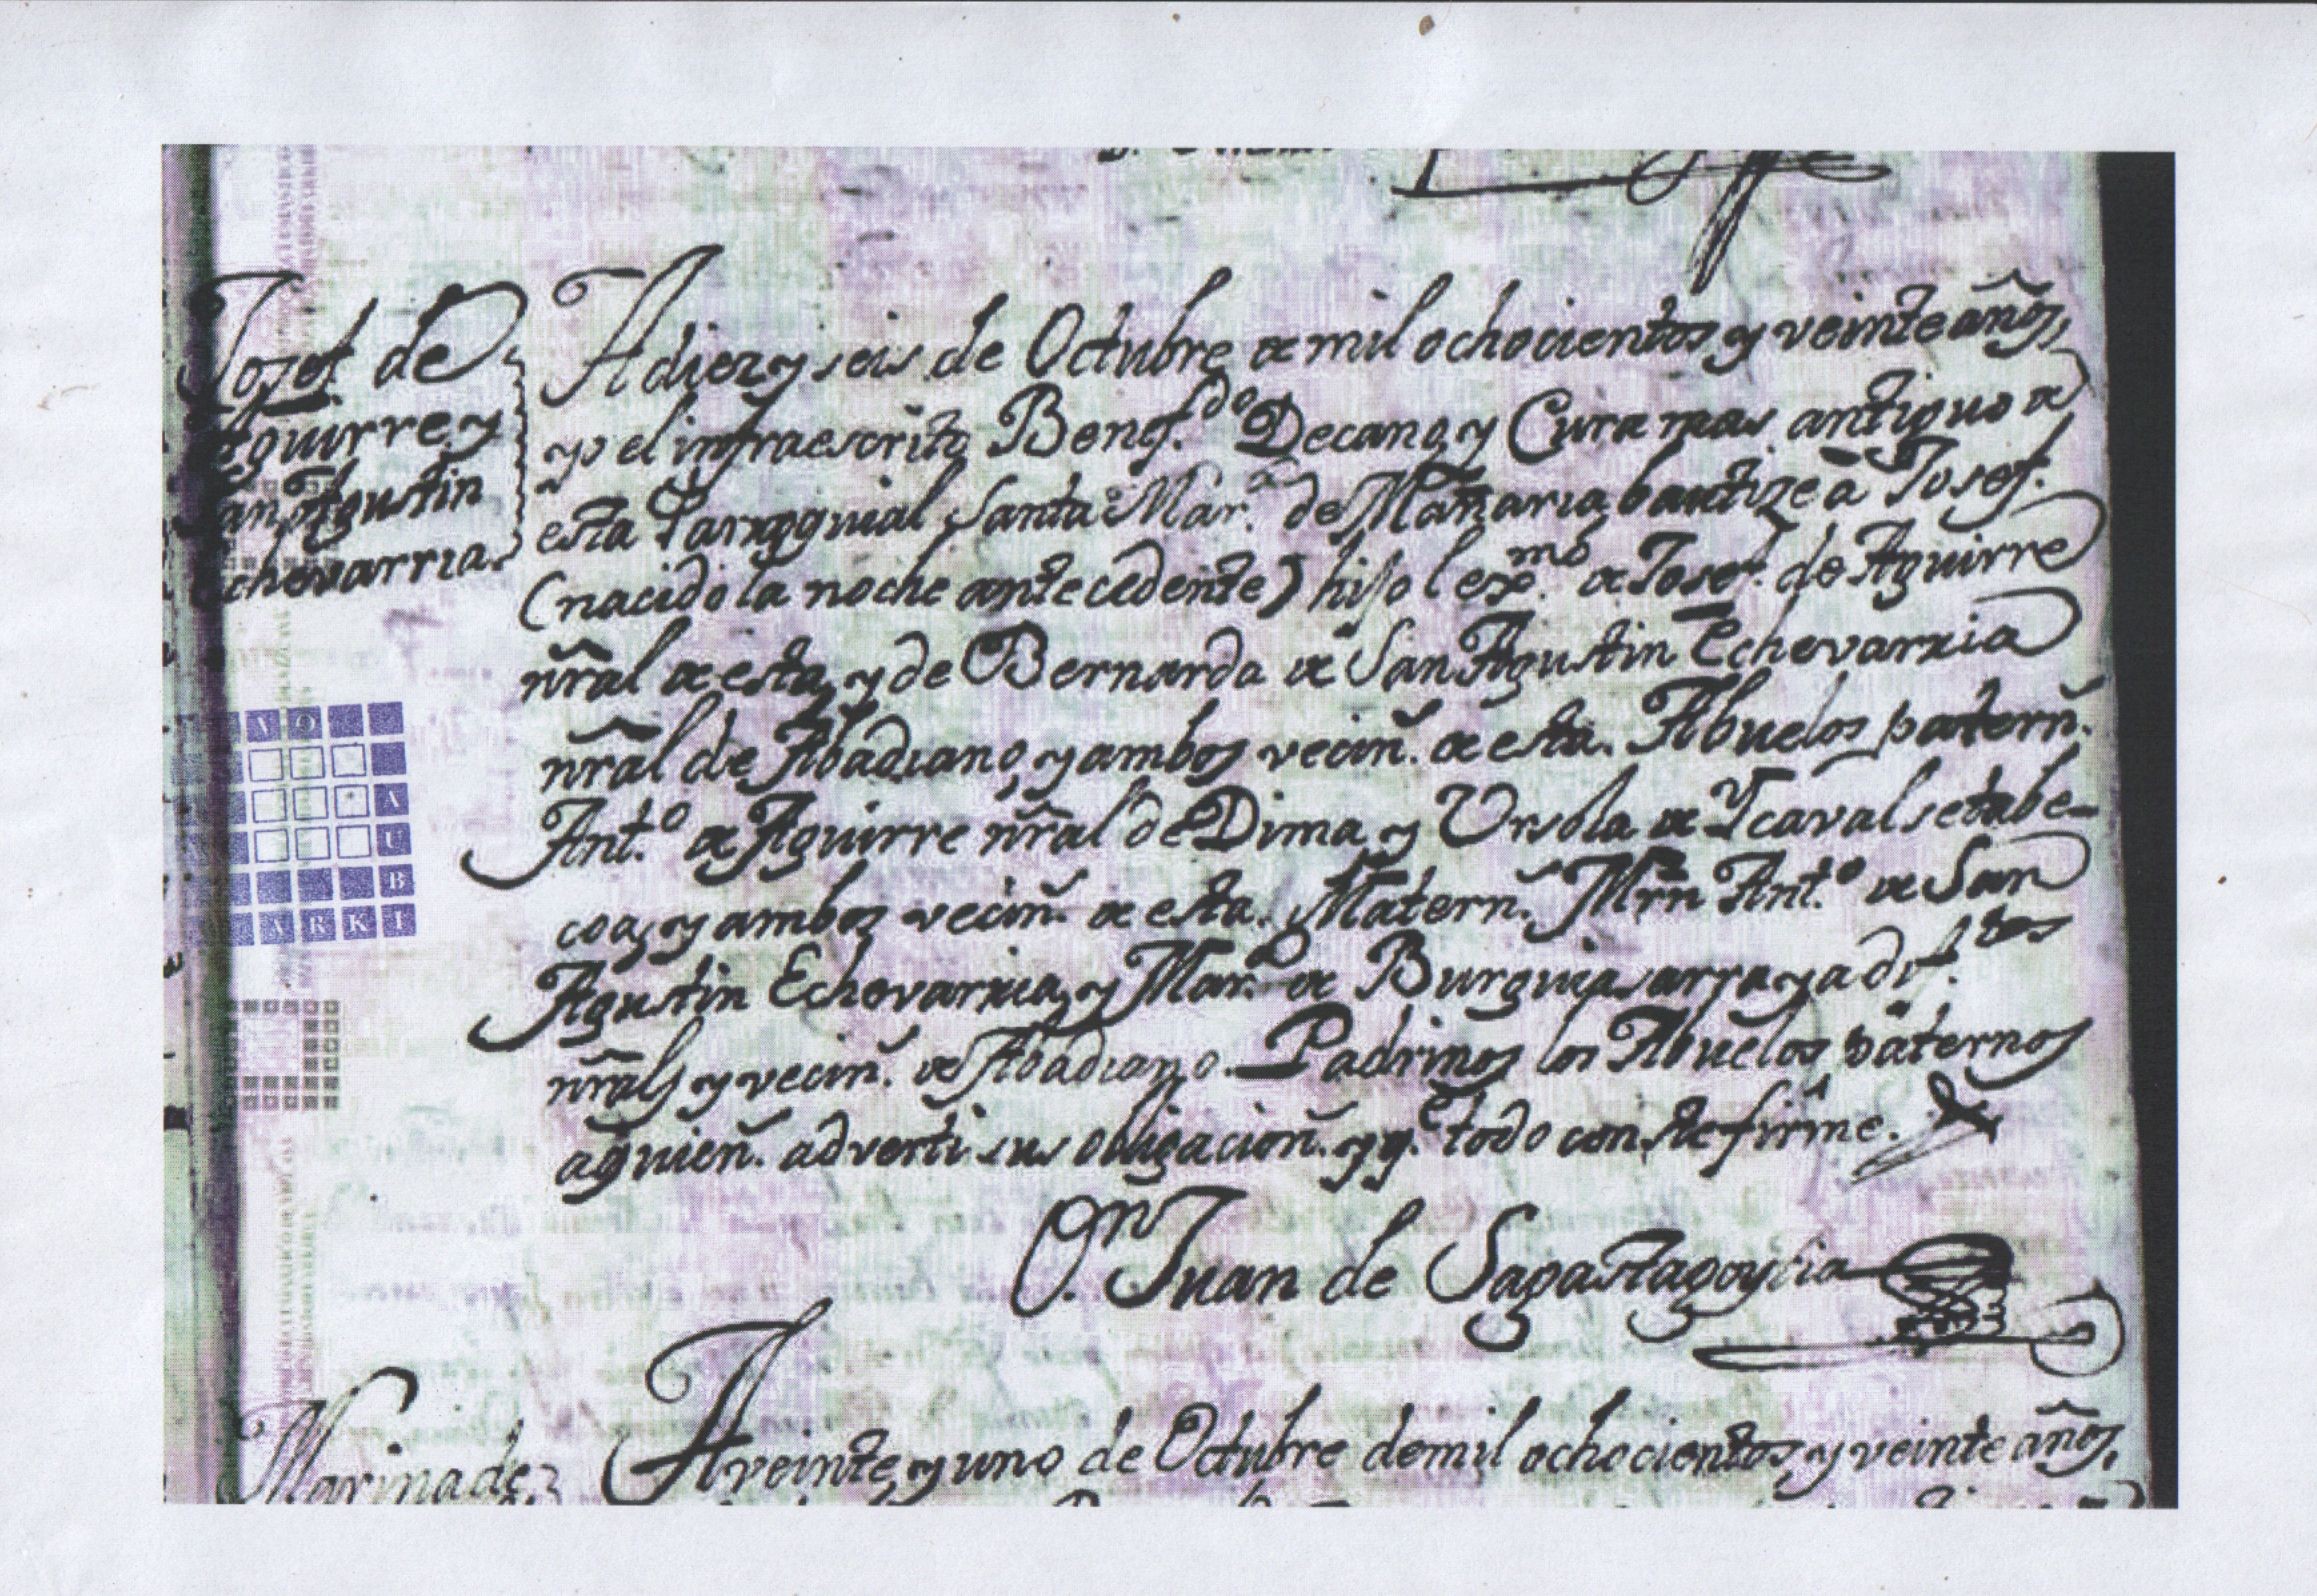 Josef de
Aguirre y
San Agustin
Echevarria.
A diez y seis de Octubre de mil ochocientos y veinte años,
yo el infraescrito Benef.do Decano, y Cura mas antiguo de
esta Parroquial Santa Mar.a de Mañaria bautizé à Josef.
(nacido la noche antecedente) hijo lexmo. de Josef de Aguirre
ñral de esta, y de Bernarda de San Agustin Echevarria
ñral de Abadiano, y ambos veciñ. de esta. Abuelos paterñ.
Ant.o de Aguirre ñral de Dima, y Ursola de Ycavalsetabe-
coa, y ambos veciñ. de esta. Matern. Mrn Ant.o de San
Agustin Echevarria, y Mar.a de Burguia
ñrals y veciñ. de Abadiano. Padrinos los Abuelos paternos
aquieñ. adverti sus obligacioñ. y q.e todo conste firmé.
Dn. Juan de Sagastagoytia
Marina de
A veinte, y uno de Octubre de mil ochocientos, y veinte años,
A
U
B
A R K I